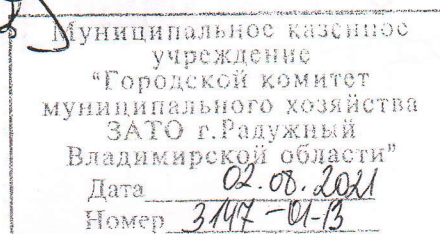 Муниципальное казенное
учреждение
"Городской комитет
муниципального хозяйства
ЗАТО г.Радужный
Владимирской области"
Дата 02.08.2021
Номер 3147-01-13